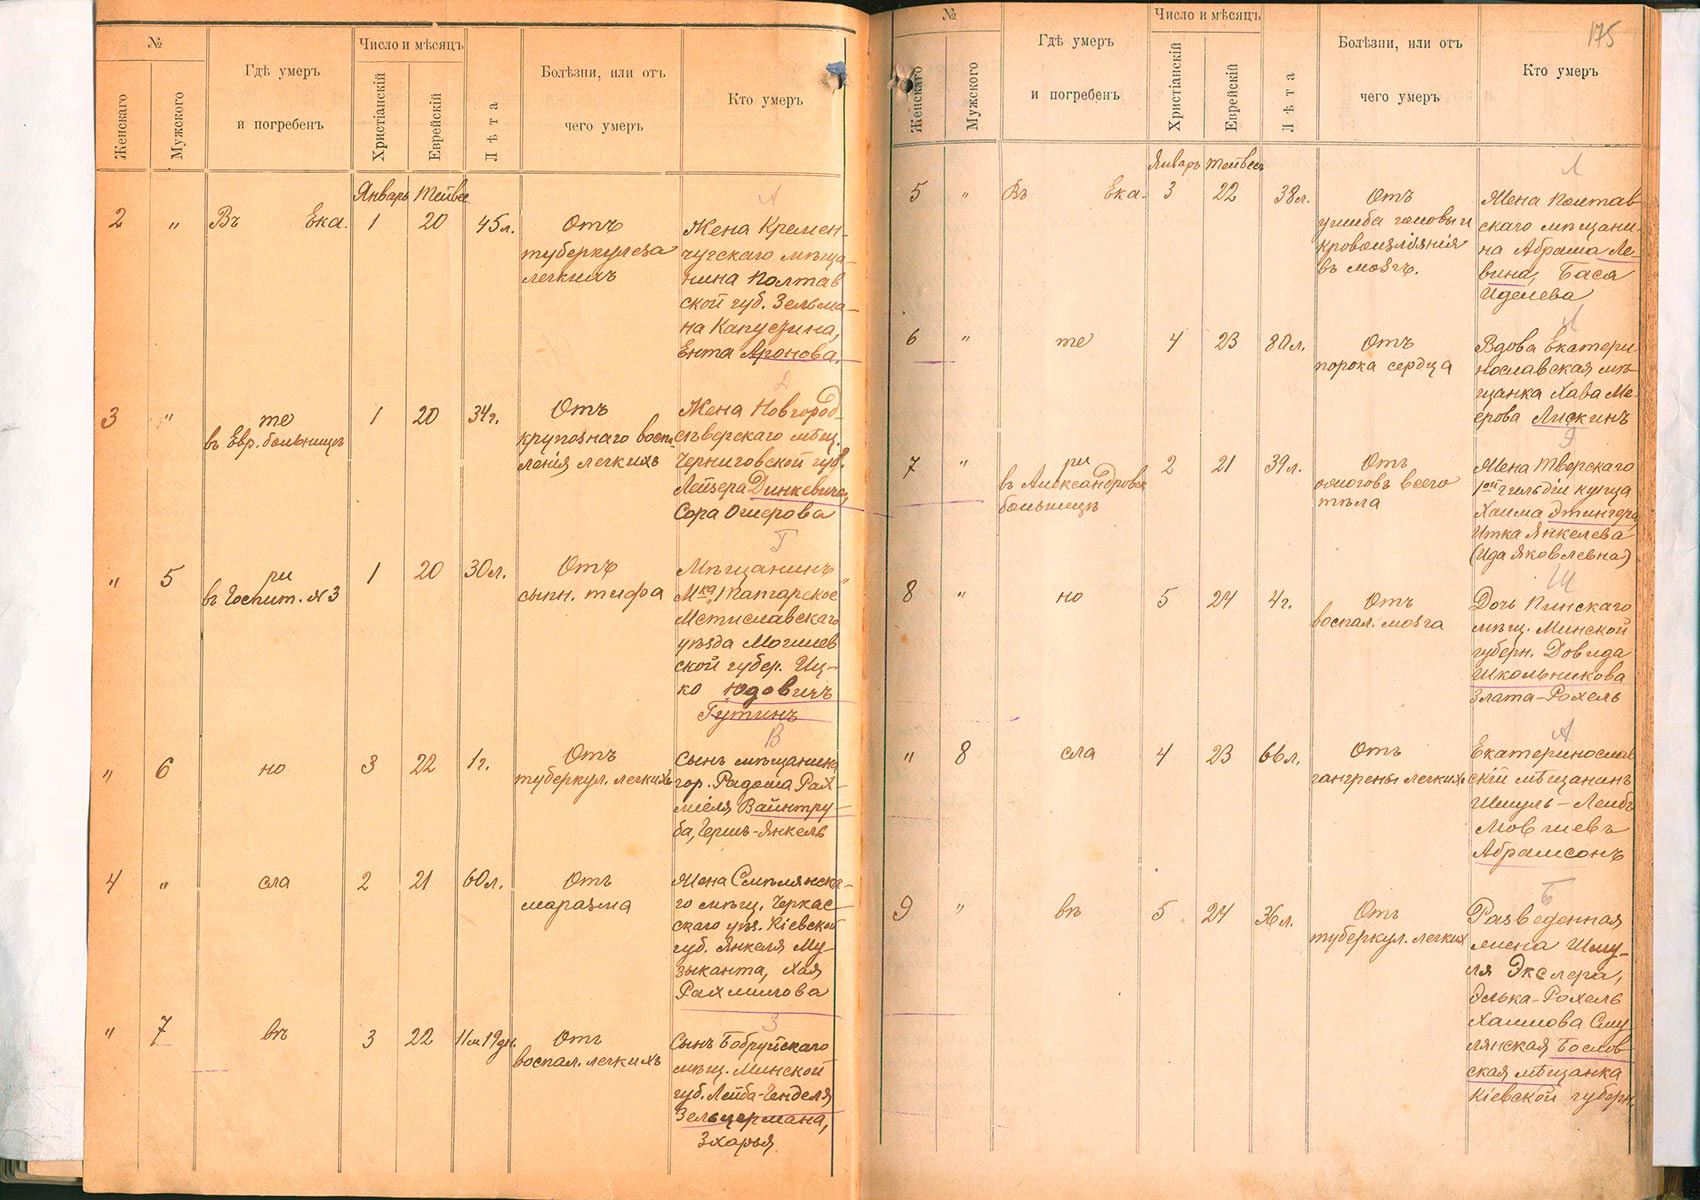 №
Женскаго
Мужского
Гдѣ умеръ
и погребенъ
Число и мѣсяцъ
Христіанскій
Еврейскій
Лѣта
Болѣзни, или отъ
чего умеръ
Кто умеръ
Январь Тейвес
А
2 " Въ Ека. 1 20 45л. Отъ
туберкулеза
легкихъ
Жена Кремен-
чугскаго мѣща-
нина Полтав
ской губ. Зельма-
на Капустина,
Ента Аронова.
Д
3 " те 1 20 34г. Отъ
въ Евр. больницѣ
крупознаго воспа-
ленія легкихъ
Жена Новгород-
сѣверскаго мѣщ.
Черниговской губ.
Лейзера Динкевича,
Сора Ошерова
Г
" 5 ри 1 20 30л. Отъ
въ Госпит. №3
сыпн. тифа
Мѣщанинъ
Мстиславскаго
уѣзда Могилев
ской губер. Иц-
ко Юдовичъ
Гутинъ
В
" 6 но 3 22 1г. Отъ
туберкул. легкихъ
Сынъ мѣщанина
гор. Радома Рах-
міеля Вайнтру-
ба, Гершъ-Янкель
4 " сла 2 21 60л. Отъ
маразма
Жена Смѣлянска-
го мѣщ. Черкас-
скаго уѣз. Кіевской
губ. Янкеля Му-
зыканта, Хая
Рахмилова
З
" 7 вѣ 3 22 11м 19дн. Отъ
воспал. легкихъ
Сынъ Бобруйскаго
мѣщ. Минской
губ. Лейба-Генделя
Зельцермана,
Зхарья
175
№
Женскаго
Мужского
Гдѣ умеръ
и погребенъ
Число и мѣсяцъ
Христіанскій
Еврейскій
Лѣта
Болѣзни, или отъ
чего умеръ
Кто умеръ
Январь Тейвес
Л
5 " Въ Ека. 3 22 38л. Отъ
ушиба головы и
кровоизліянія
въ мозгъ.
Жена Полтав-
скаго мѣщани-
на Абрама Ле-
вина, Бася
Иделева
Л
6 " те 4 23 80л. Отъ
порока сердца
Вдова Екатери-
нославская мѣ-
щанка Хава Ме-
ерова Лискинъ
Э
7 " ри 2 21 39л. Отъ
въ Александровск
больницѣ
ожоговъ всего
тѣла
Жена Тверскаго
1ой гильдіи купца
Хаима Этингера,
Итка Янкелева
(Ида Яковлевна)
Ш
8 " но 5 24 4г. Отъ
воспал. мозга
Дочь Пинскаго
мѣщ. Минской
губерн. Довида
Школьникова
Злата-Рохель
А
" 8 сла 4 23 66л. Отъ
гангрены легкихъ
Екатеринослав
скій мѣщанинъ
Шмуль-Лейбъ
Мовшевъ
Абрамсонъ
Б
9 " вѣ 5 24 36л. Отъ
туберкул. легких
Разведенная
жена Шму-
ля Экслера,
Элька-Рохель
Хаимова Сму-
лянская Бослов
ская мѣщанка
Кіевской губерн.